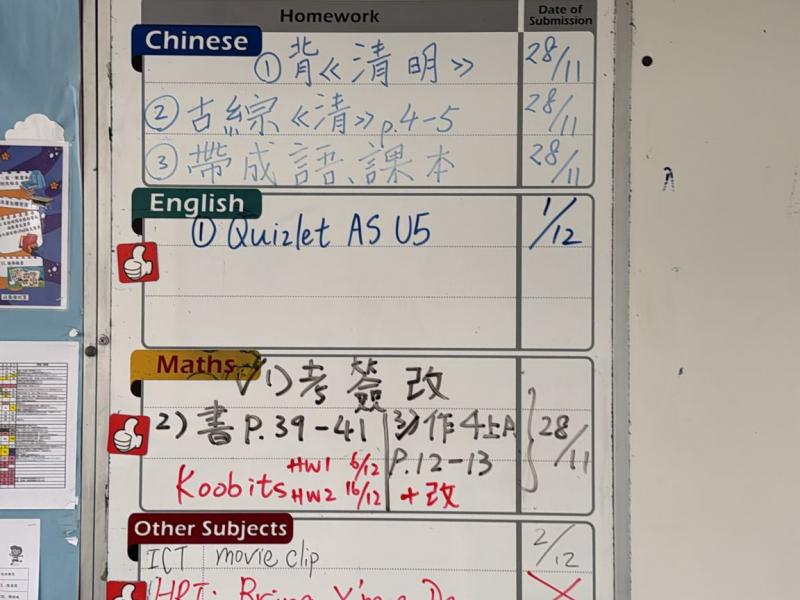 Homework Date of Submission
Chinese
① 背《清明》 28/11
② 古綜《清》p.4-5 28/11
③ 帶成語、課本 28/11
English
① Quizlet AS U5 1/12
Maths
✓1) 考簽改
2) 書 P.39-41 3) 作4上A 28/11
P.12-13
Koobits HW1 6/12
HW2 16/12 + 改
Other Subjects
ICT movie clip 2/12
Bring